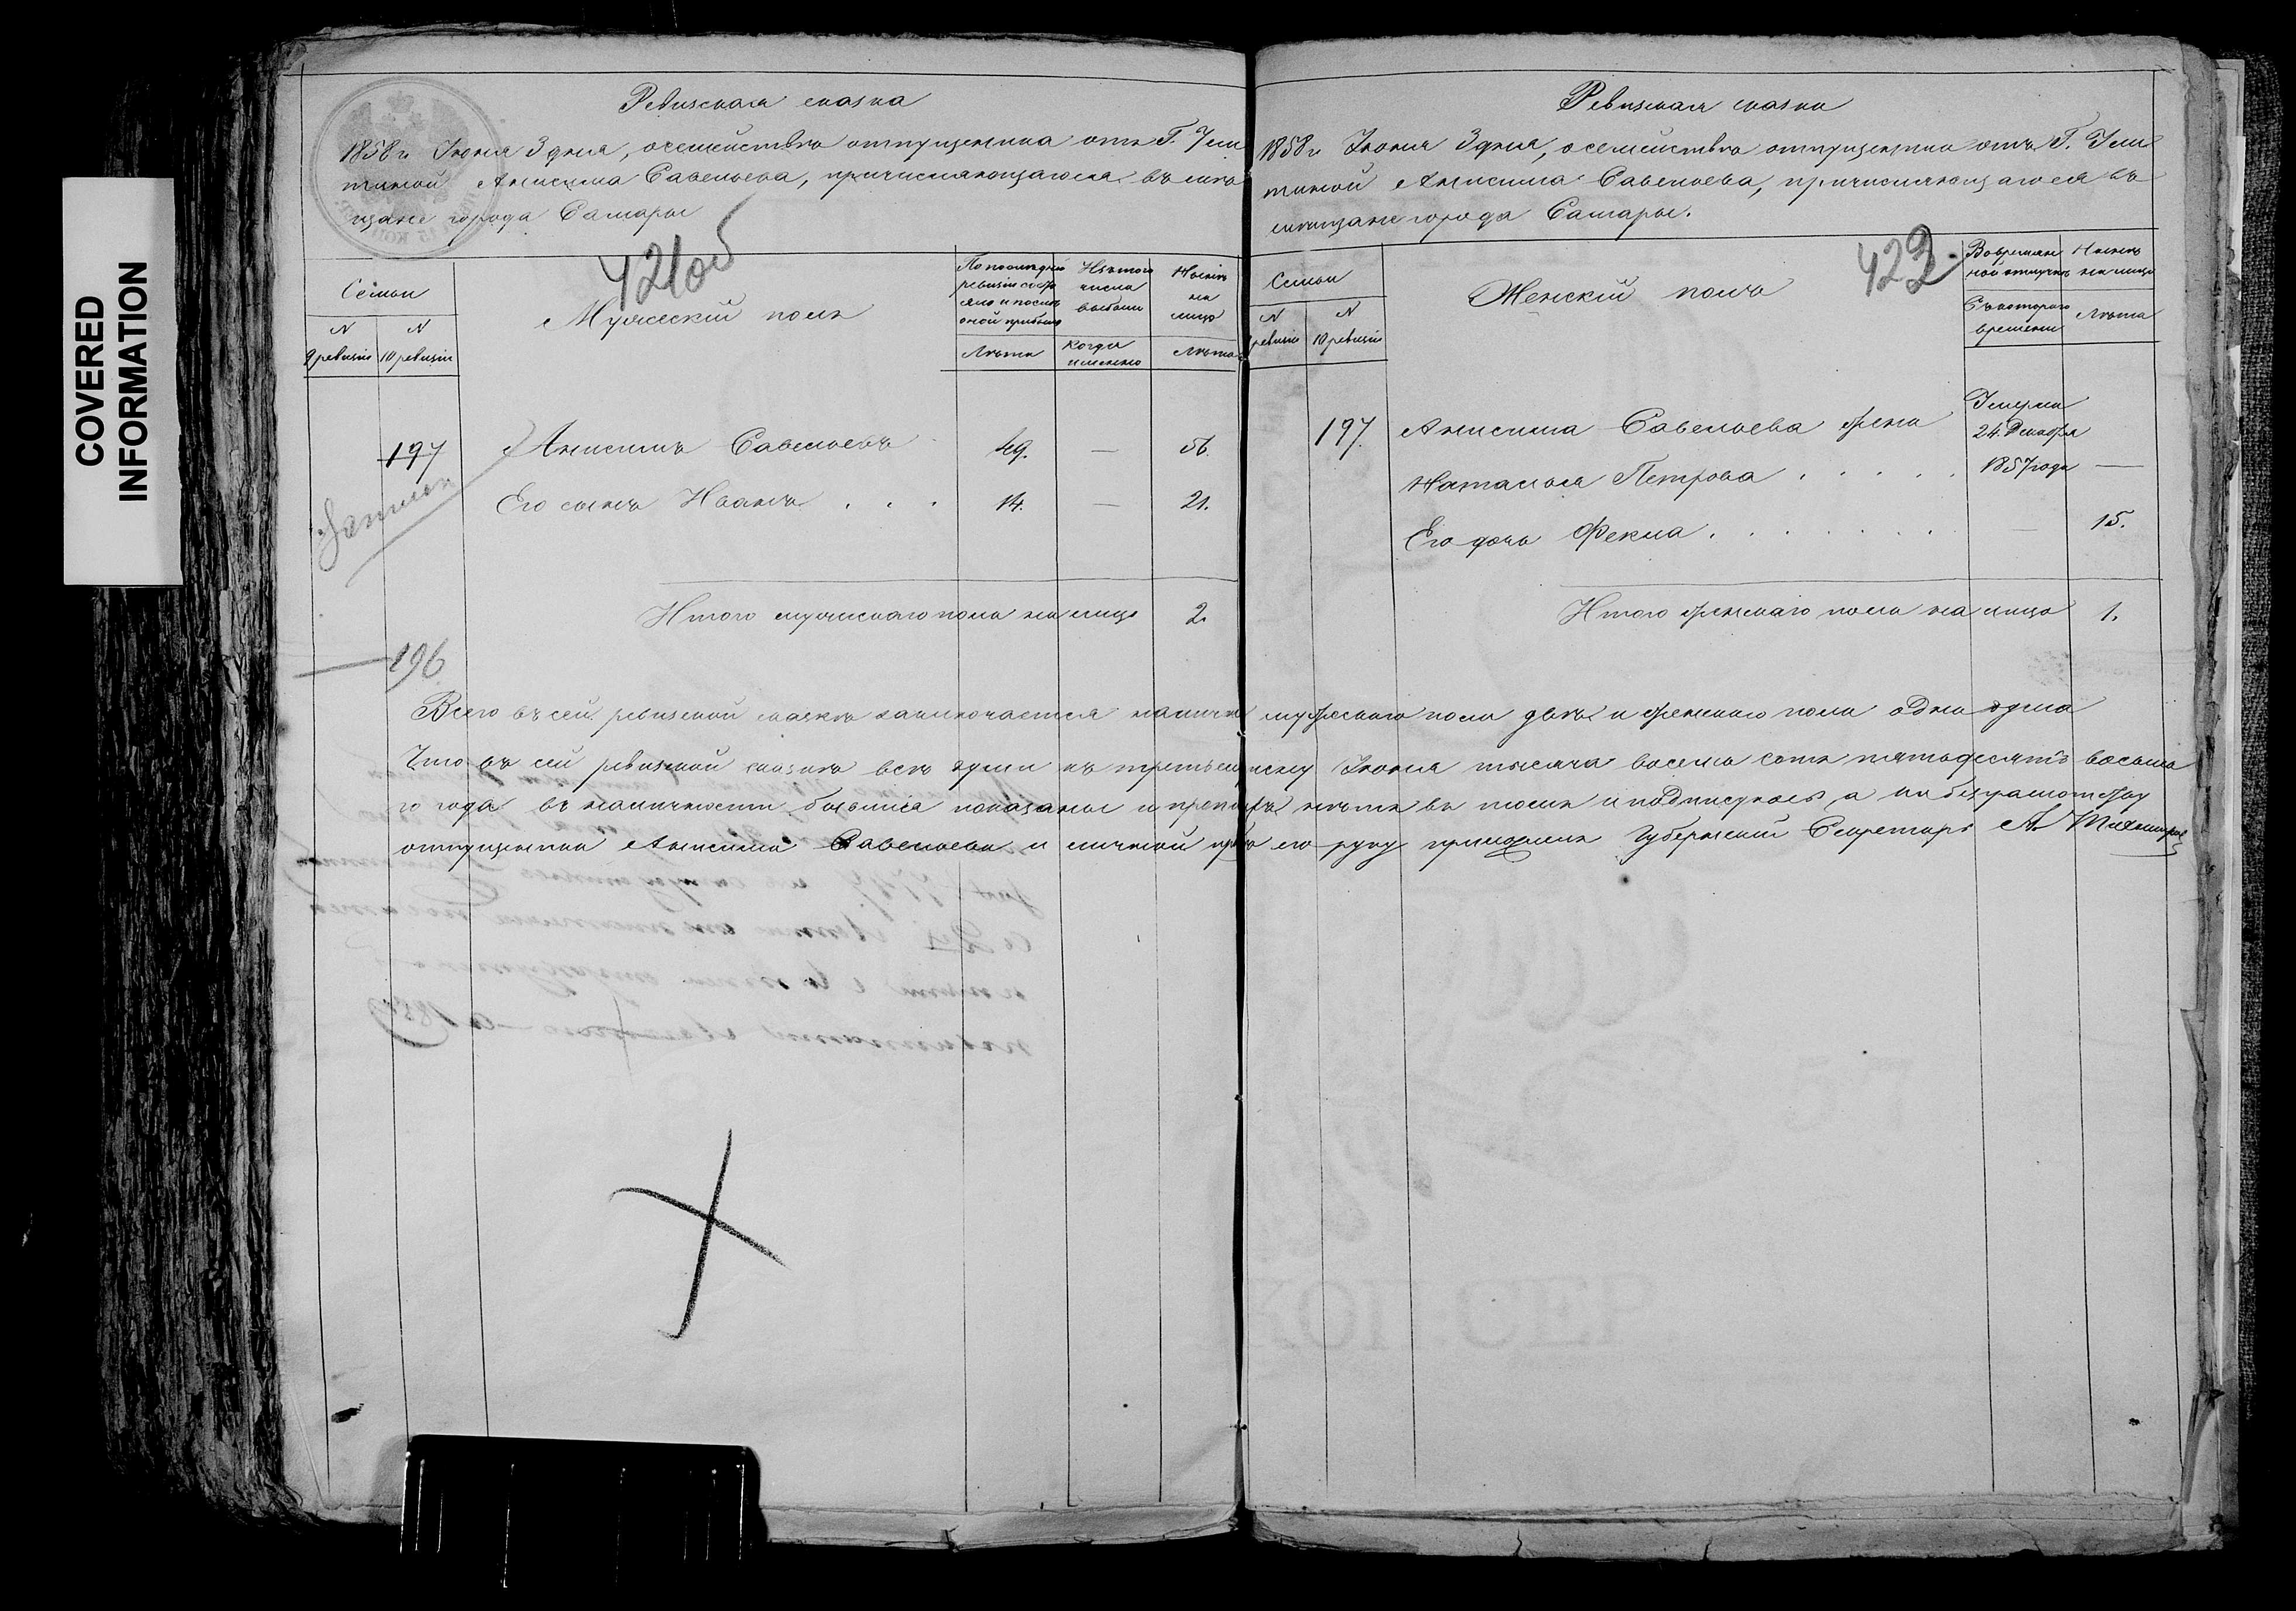 COVERED
INFORMATION
Ревизская сказка
1858 г. Июня 3 дня, о семействѣ отпущенника отъ Г.
Анисима Савельева, причисляющагося въ мѣ
щане города Самары
421 об
Семьи
N
9 ревизіи
N
10 ревизіи
Мужескій полъ
По последней
ревизіи состо
яло и послѣ
оной прибыло
Лѣта
Изъ того
числа
выбыли
Когда
именно
Нынѣ
на
лицо
Лѣта
197
Анисимъ Савельевъ 49. — 56.
Его сынъ Иванъ . . . 14. — 21.
Итого мужескаго пола на лицо 2.
196
Ревизская сказка
1858 г. Июня 3 дня, о семействѣ отпущенника отъ Г.
Анисима Савельева, причисляющагося въ
мѣщане города Самары.
423
Семьи
N
ревизіи
N
10 ревизіи
Женскій полъ
Во времен
ной отлучкѣ
Съ котораго
времени
Нынѣ
на лицо
Лѣта
197. Анисима Савельева жена
Наталья Петрова . . . .
Умерла
24 Декабря
1857 года —
Его дочь Фекла . . . . . . 15.
Итого женскаго пола на лицо 1.
Всего въ сей ревизской сказкѣ заключается налично мужескаго пола двѣ и женскаго пола одна душа
Что въ сей ревизской сказкѣ все души къ третьему числу Июня тысяча восемь сотъ пятьдесятъ восьма
го года въ наличности бывшія показаны и прописныхъ нѣтъ въ томъ и подписуюсь, а по безграмотству
отпущенника Анисима Савельева и личной прозьбѣ его руку приложилъ Губернскій Секретарь А. Тихомиров